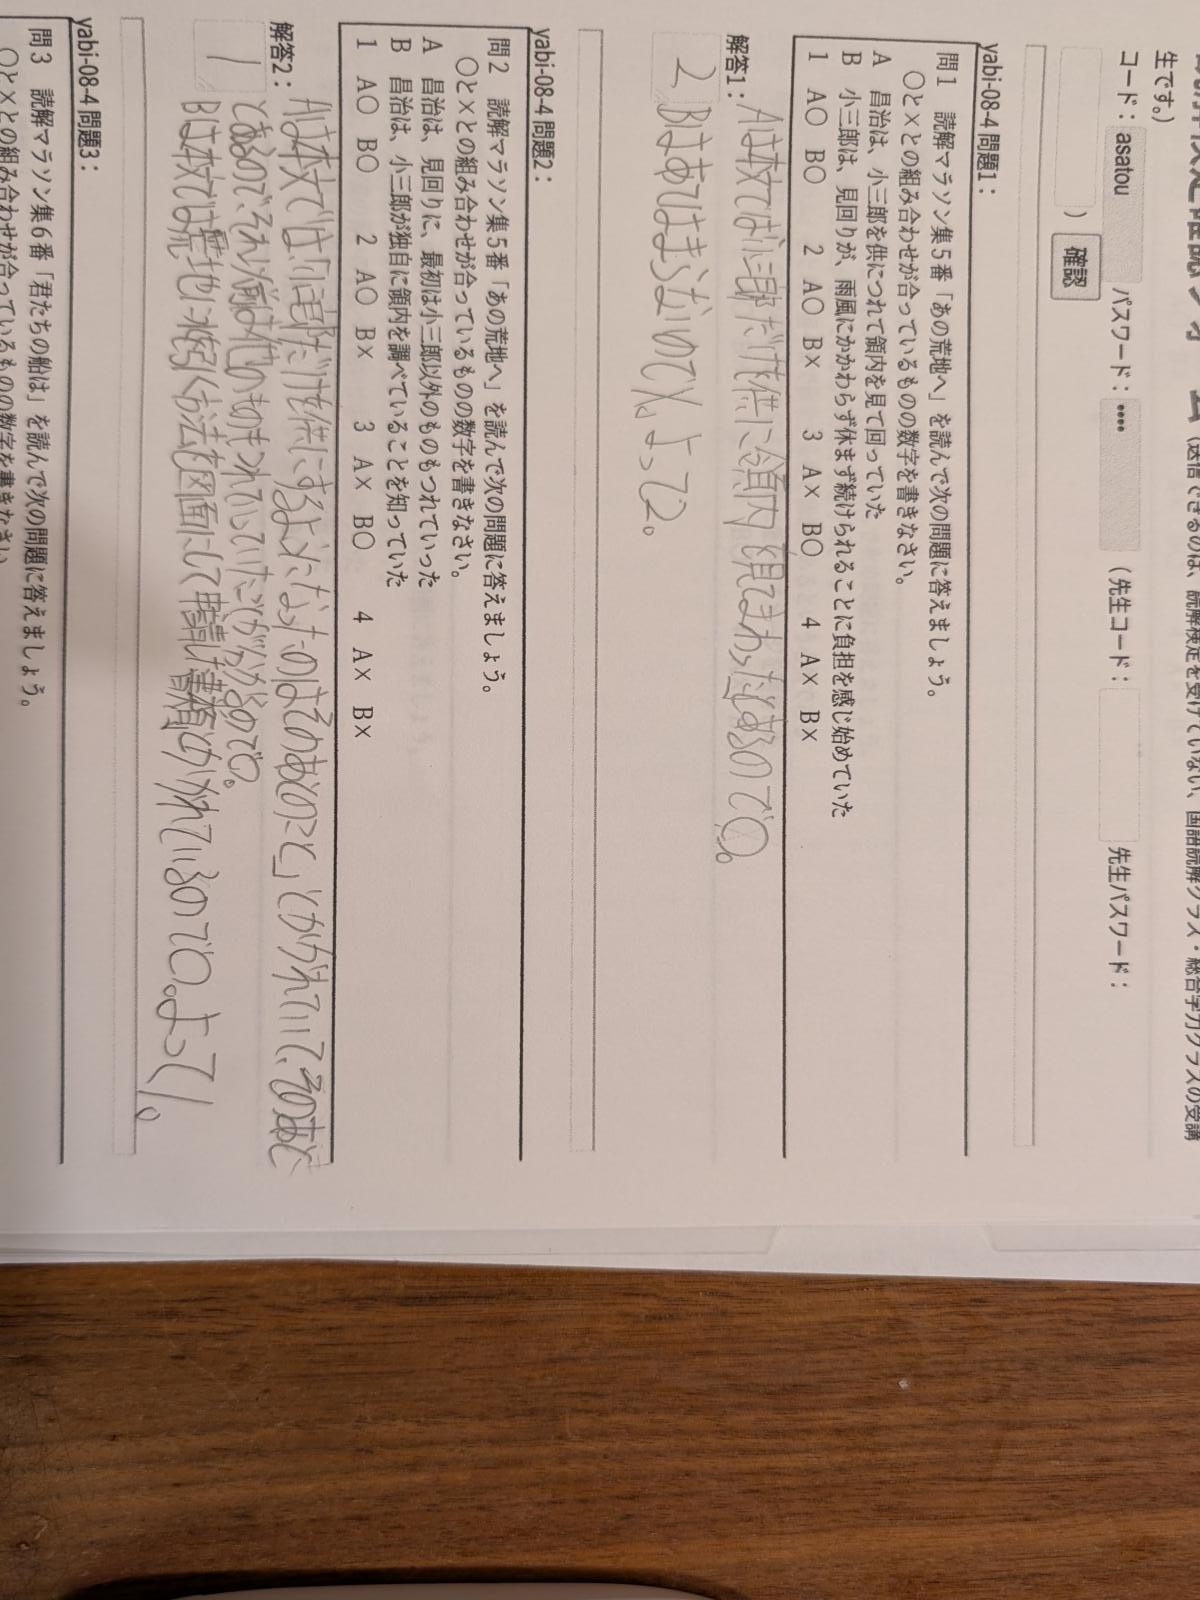 生です。)
コード： asatou パスワード： •••• （先生コード： 先生パスワード：
） 確認
yabi-08-4 問題1：
問1 読解マラソン集5番「あの荒地へ」を読んで次の問題に答えましょう。
○と×との組み合わせが合っているものの数字を書きなさい。
A 昌治は、小三郎を供につれて領内を見て回っていた
B 小三郎は、見回りが、雨風にかかわらず休まず続けられることに負担を感じ始めていた
1 A○ B○ 2 A○ B× 3 A× B○ 4 A× B×
解答1： Aは本文では「小三郎だけ供に領内を見てまわった」とあるので○。
2 Bはあてはまらないので×。よって2。
yabi-08-4 問題2：
問2 読解マラソン集5番「あの荒地へ」を読んで次の問題に答えましょう。
○と×との組み合わせが合っているものの数字を書きなさい。
A 昌治は、見回りに、最初は小三郎以外のものもつれていった
B 昌治は、小三郎が独自に領内を調べていることを知っていた
1 A○ B○ 2 A○ B× 3 A× B○ 4 A× B×
解答2： Aは本文では、「小三郎だけ供にするようになったのはそのあとのこと」とかかれていて、そのあと
とあるので、それい前は他のものもつれていっていたことがわかるので○。
1 Bは本文では荒地に水を引く方法を図面にして申請した書類とかかれているので○。よって1。
yabi-08-4 問題3：
問3 読解マラソン集6番「君たちの船は」を読んで次の問題に答えましょう。
○と×との組み合わせが合っているものの数字を書きなさい